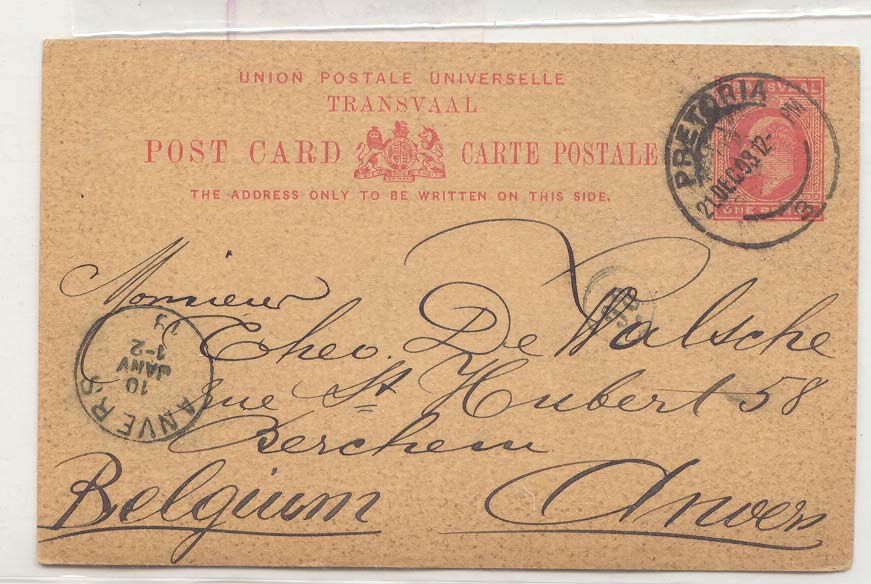 UNION POSTALE UNIVERSELLE
TRANSVAAL
POST CARD CARTE POSTALE
THE ADDRESS ONLY TO BE WRITTEN ON THIS SIDE.
TRANSVAAL
ONE PENNY
PRETORIA
21 DEC 03 12- PM
Monsieur
Theo. De Walsche
rue St Hubert 58
Berchem
Belgium Anvers
ANVERS
10
JANV
1-2